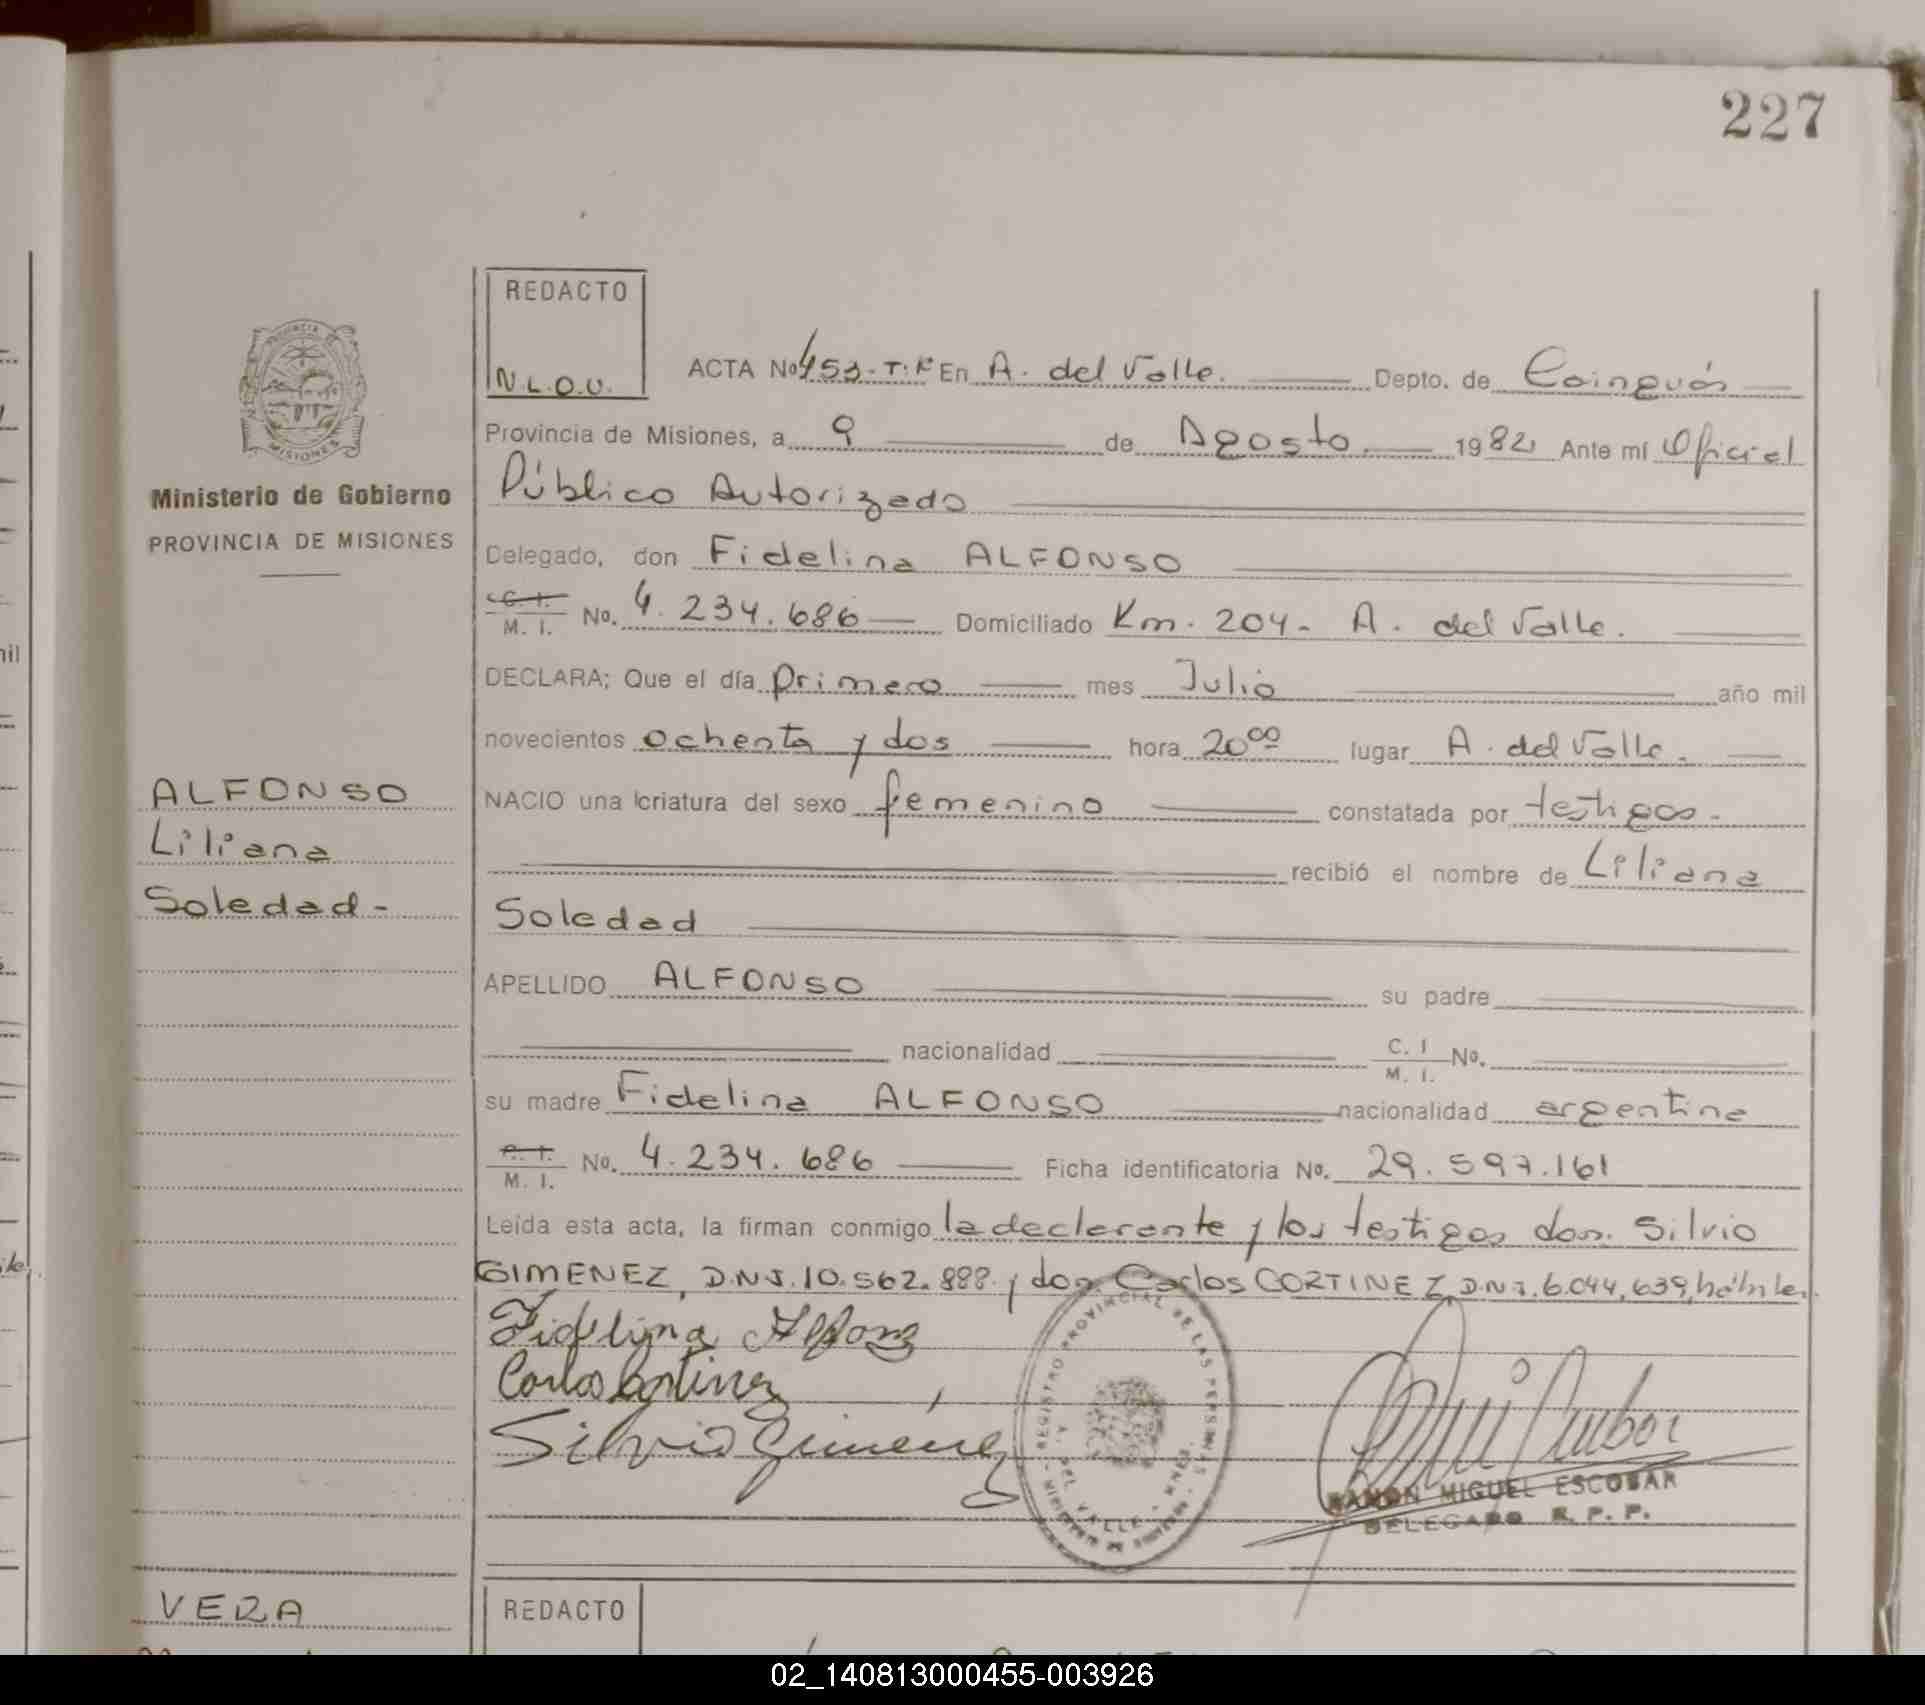 227
REDACTO
N.L.O.U.
ACTA No 453-T:Iº En A. del Valle. Depto. de Cainguás
Provincia de Misiones, a 9 de Agosto 1982 Ante mí Oficial
Público Autorizado
Ministerio de Gobierno
PROVINCIA DE MISIONES
Delegado, don Fidelina ALFONSO
C. I.
M. I. No. 4.234.686 Domiciliado Km. 204- A. del Valle.
DECLARA; Que el día primero mes Julio año mil
novecientos ochenta y dos hora 20⁰⁰ lugar A. del Valle.
ALFONSO
Liliana
Soledad-
NACIO una criatura del sexo femenino constatada por testigos.
recibió el nombre de Liliana
Soledad
APELLIDO ALFONSO su padre
nacionalidad C. I
M. I. No.
su madre Fidelina ALFONSO nacionalidad argentina
M. I. No. 4.234.686 Ficha identificatoria No. 29.597.161
Leída esta acta, la firman conmigo la declarante y los testigos don. Silvio
GIMENEZ, D.N.I.10.562.888. y don Carlos CORTINEZ, D.N.I. 6.044,639, hábiles.
Fidelina Alfonso
Carlos Cortinez
Silvio Gimenez
REGISTRO PROVINCIAL DE LAS PERSONAS
A. DEL VALLE - MNES.
RAMON MIGUEL ESCOBAR
DELEGADO R. P. P.
VERA
REDACTO
02_140813000455-003926